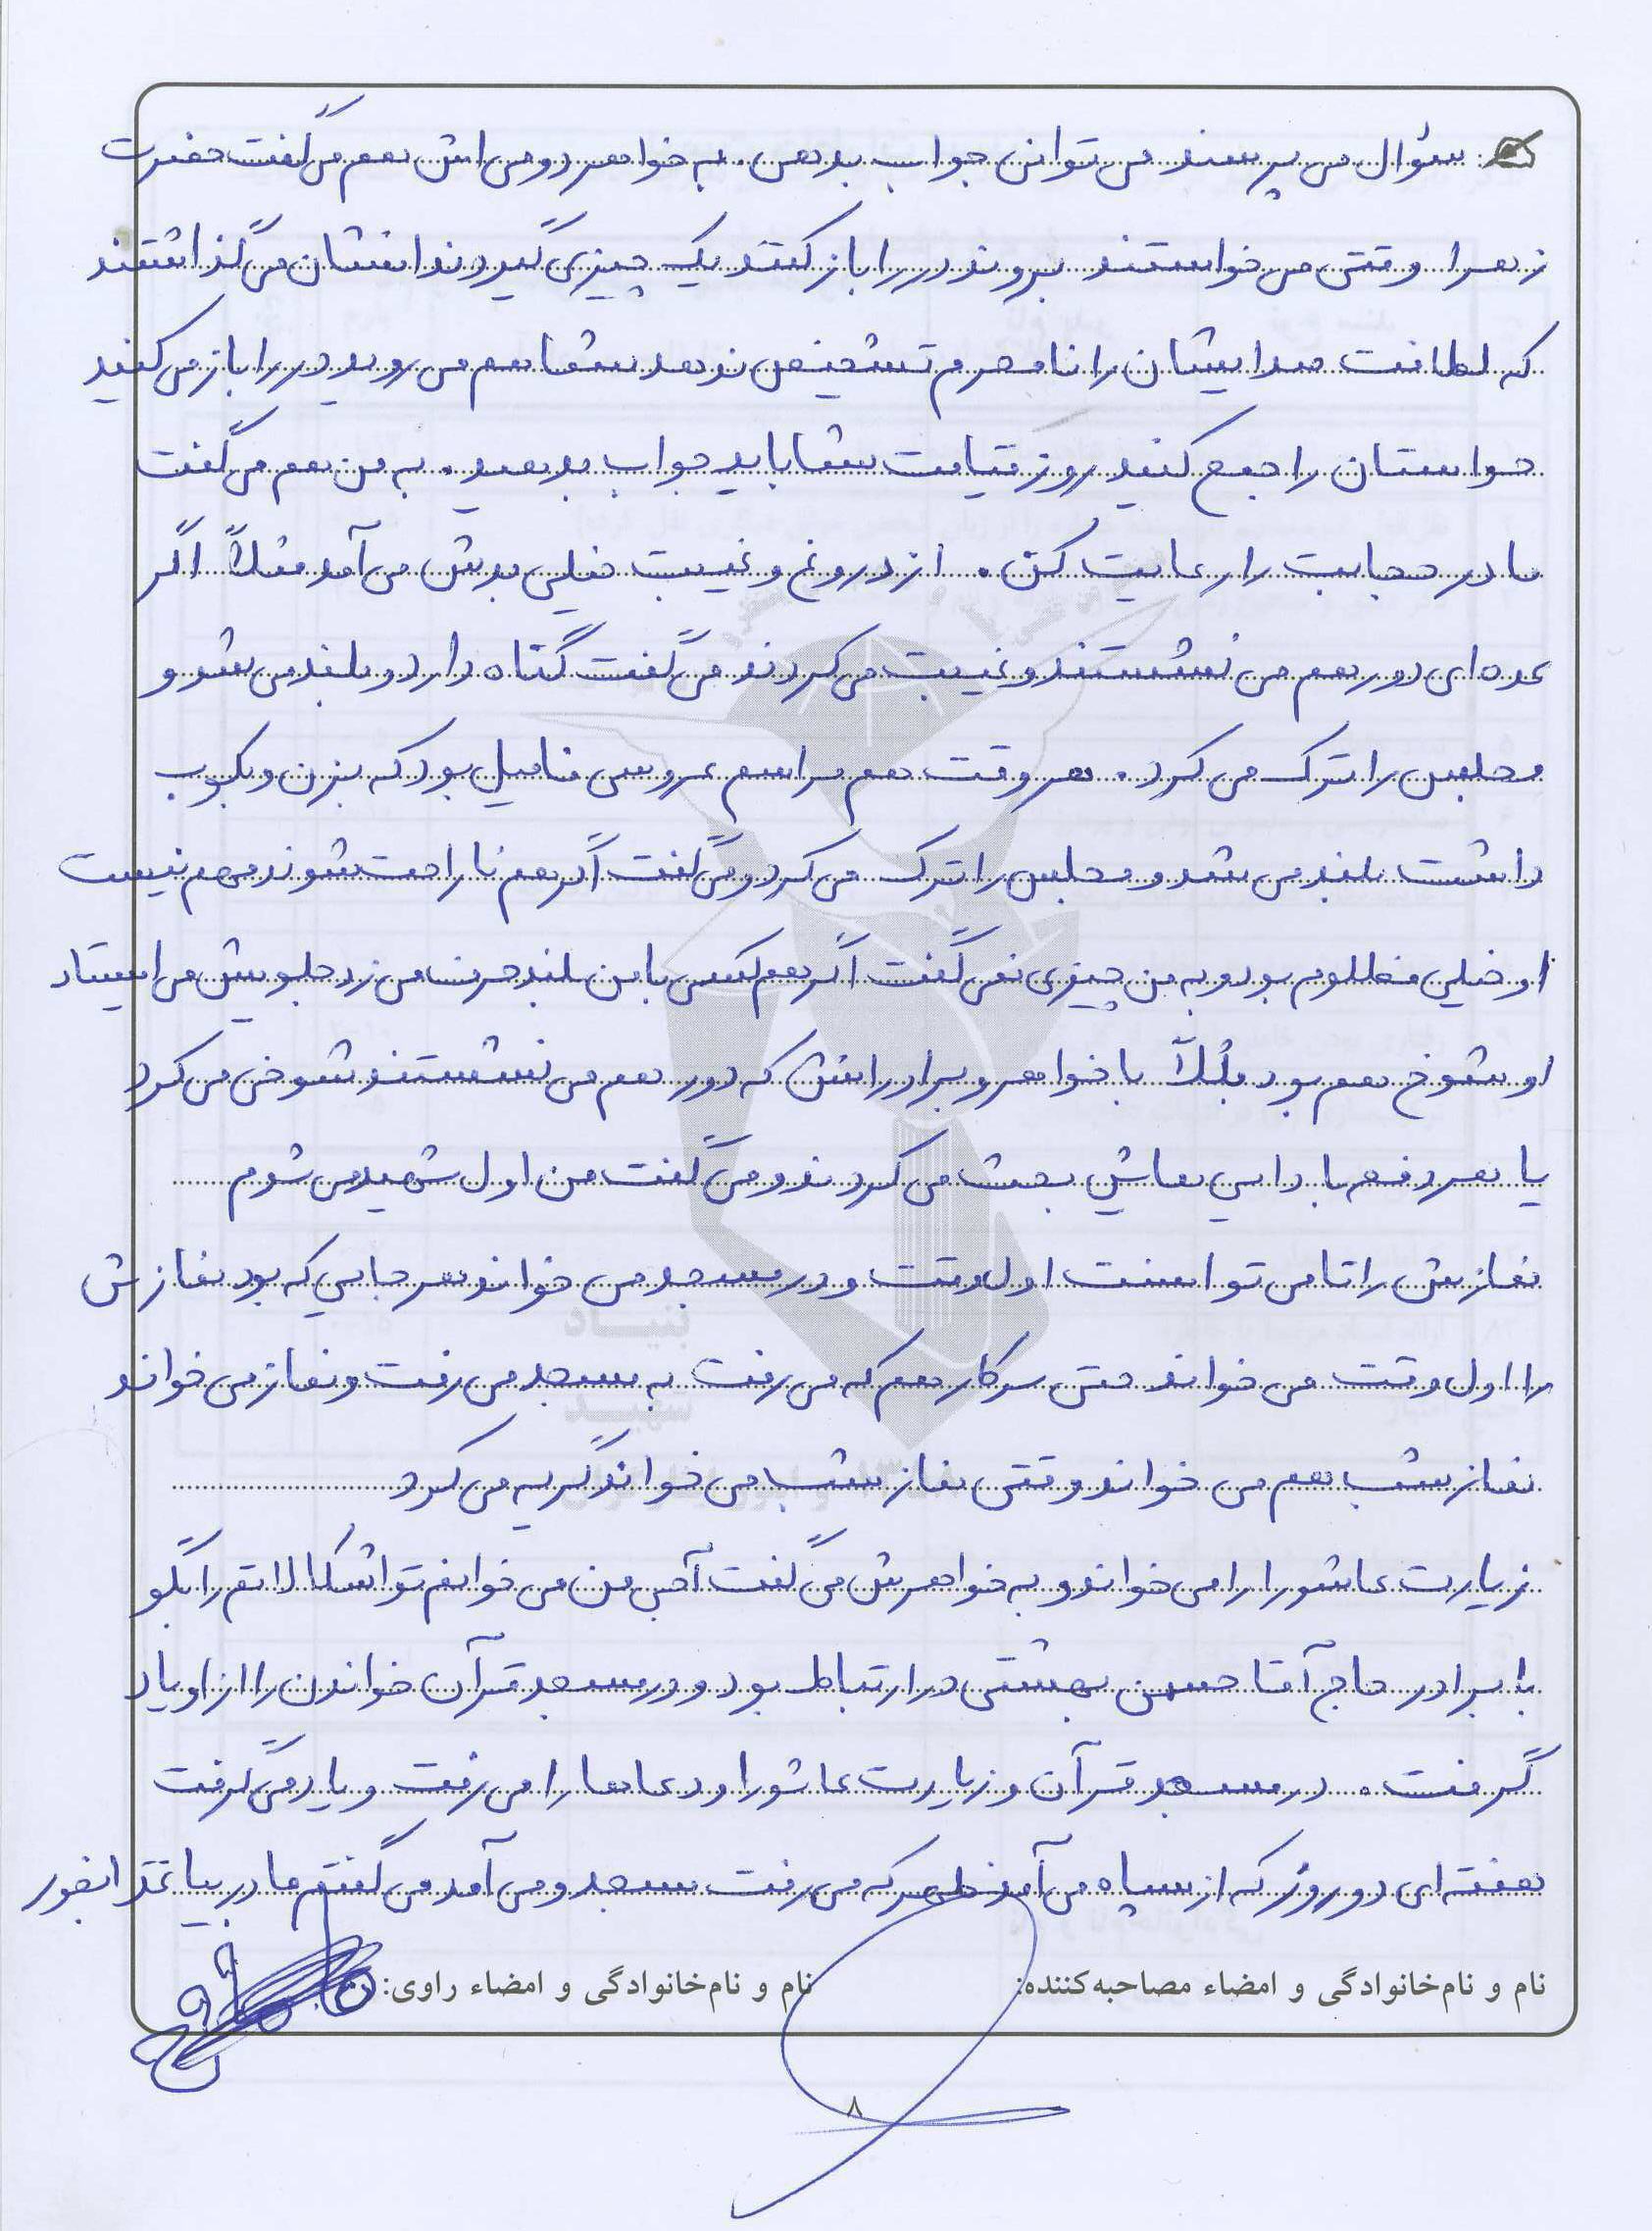 سئوال می پرسند می توانی جواب بدهی. به خواهر دومی اش هم می گفت حضرت
زهرا وقتی می خواستند بروند در را باز کنند یک چیزی گیر دندانشان می گذاشتند
که لطافت صدایشان را نامحرم تشخیص ندهد شما هم می روید در را باز می کنید
حواستان را جمع کنید روز قیامت شما باید جواب بدهید. به من هم می گفت
مادر حجابت را رعایت کن. از دروغ و غیبت خیلی بدش می آمد مثلاً اگر
عده ای دور هم می نشستند و غیبت می کردند می گفت گناه دارد و بلند می شد و
مجلس را ترک می کرد. هر وقت هم مراسم عروسی فامیل بود که بزن و بکوب
داشت بلند می شد و مجلس را ترک می کرد و می گفت اگر هم ناراحت شوند مهم نیست
او خیلی مظلوم بود و به من چیزی نمی گفت اگر هم کسی با من بلند حرف می زد جلویش می ایستاد
او شوخ هم بود مثلاً با خواهر و برادرانش که دور هم می نشستند شوخی می کرد
یا هر دفعه با دایی هاش بحث می کردند و می گفت من اول شهید می شوم
نمازش را تا می توانست اول وقت و در مسجد می خواند هر جایی که بود نمازش
را اول وقت می خواند حتی سر کار هم که می رفت به مسجد می رفت و نماز می خواند
نماز شب هم می خواند وقتی نماز شب می خواند گریه می کرد
زیارت عاشورا را می خواند و به خواهرش می گفت آجی من می خوانم تو اشکالاتم را بگو
با برادر حاج آقا حسین بهشتی در ارتباط بود و در مسجد قرآن خواندن را از او یاد
گرفت. در مسجد قرآن و زیارت عاشورا و دعاها را می رفت و یاد می گرفت
هفته ای دو روز که از سپاه می آمد ظهر که می رفت مسجد و می آمد می گفتم مادر بیا غذا بخور
نام و نام‌خانوادگی و امضاء مصاحبه‌کننده: نام و نام‌خانوادگی و امضاء راوی:
۸
بنیاد
شهید